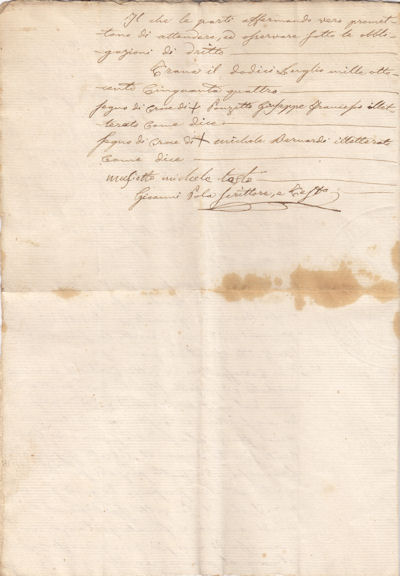 Il che le parti affermando vero promet
tono di attendere, ed osservare sotto le obbli-
gazioni di dritto
Teana il dodici Luglio mille otto
cento cinquanta quattro
Segno di croce di + Giuseppe Francesco illet
terato come dice
Segno di croce di + Michele Bernardi illetterato
come dice
Michele testo
Giovanni Pola scrittore, e Testo